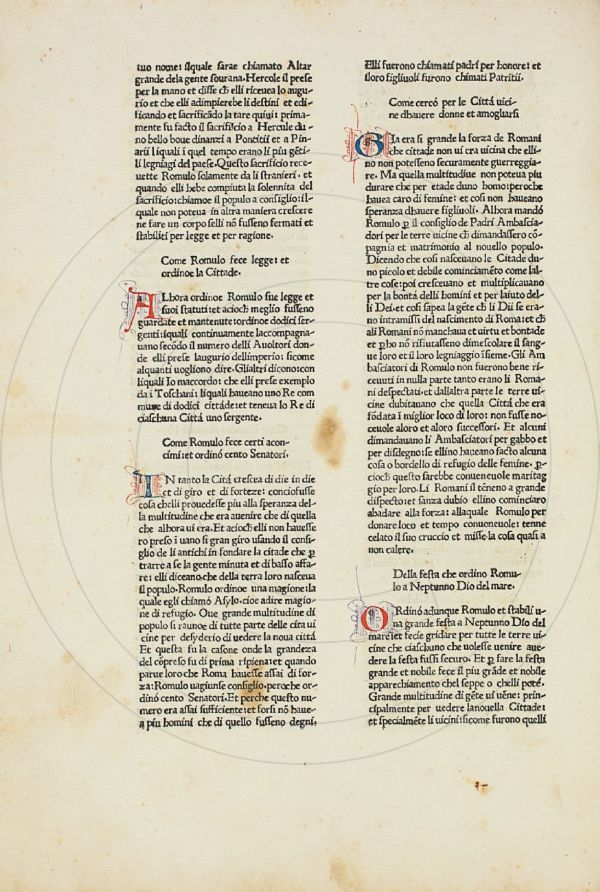 tuo nome: ilquale sarae chiamato Altar
grande dela gente sourana. Hercole il prese
per la mano et disse ch̄ elli riceuea lo augu⸗
rio et che elli adimpierebe li destini et edi⸗
ficando et sacrificādo la tare quiui: prima⸗
mente fu facto il sacrificio a Hercule du⸗
no bello boue dinanzi a Poncitii et a Pin⸗
arii liquali i quel tempo erano li piu gēti⸗
li legniagi del paese. Questo sacrificio rece⸗
uette Romulo solamente da li stranieri. et
quando elli hebe compiuta la solennita del
sacrificio: chiamoe il populo a consiglio: il⸗
quale non poteua in altra maniera crescere
ne fare un corpo selli nō fusseno fermati et
stabiliti per legge et per ragione.
Come Romulo fece legge: et
ordinoe la Cittade.
ALhora ordinoe Romulo sue legge et
suoi statuti: et acioch̄ meglio fusseno
guardate et mantenute: ordinoe dodici ser⸗
genti: iquali continuamente laccompagna⸗
uano secōdo il numero delli Auoltori don⸗
de elli prese laugurio dellimperio: sicome
alquanti uogliono dire. Glialtri dicono: con
liquali Io maccordo: che elli prese exemplo
da i Toschani: liquali haueano uno Re com
mune di dodici cittāde: et teneua lo Re di
ciaschuna Cittá uno sergente.
Come Romulo fece certi acon⸗
cimi: et ordinó cento Senatori.
IN tanto la Citá crescea di die in die
et di giro et di forteze: conciofusse
cosa chelli prouedesse piu alla speranza del⸗
la multitudine che era auenire che di quella
che alhora ui era. Et acioch̄ elli non hauesse
ro preso i uano si gran giro usando il consi⸗
glio de li antichi in fondare la citade che ꝑ
trarre a se la gente minuta et di basso affa⸗
re: elli diceano: che della terra loro nasceua
il populo. Romulo ordinoe una magione: la
quale egli chiamó Asylo: cioe adire magio
ne di refugio. Oue grande multitudine di
populo si raunoe di tutte parte delle cita ui
cine per desyderio di uedere la noua cittá
Et questa fu la casone onde la grandeza
del cōpreso fu di prima ripiena: et quando
parue loro che Roma hauesse assai di for⸗
za: Romulo uagiunse consiglio. peroche or⸗
dinó cento Senatori. Et perche questo nu⸗
mero era assai sufficiente: et forsi nō haue⸗
a piu homini che di quello fusseno degni.
Elli fuerono chiamati padri per honore: et
iloro figliuoli furono chimati Patritii.
Come cercó per le Cittá uici⸗
ne dhauere donne et amogliarsi
GIa era si grande la forza de Romani
che cittade non ui era uicina che elli⸗
no non potesseno securamente guerreggia⸗
re. Ma quella multitudine non poteua piu
durare che per etade duno homo: peroche
hauea caro di femine: et cosi non haueano
speranza dhauere figliuoli. Alhora mandó
Romulo ꝑ il consiglio de Padri Ambascia⸗
dori per le terre uicine ch̄ dimandassero cō⸗
pagnia et matrimonio al nouello populo.
Dicendo che cosi nasceuano le Citade du⸗
no picolo et debile cominciamēto come lal⸗
tre cose: poi cresceuano et multiplicauano
per la bontá delli homini et per laiuto del⸗
li Dei. et cosi sapea la gēte ch̄ li Dii se era⸗
no intramissi del nascimento di Roma: et ch̄
ali Romani nō manchaua et uirtu et bontade
et ꝑho nō rifiutasseno dimescolare il san⸗
gue loro et il loro legniaggio isieme. Gli Am
basciatori di Romulo non fuerono bene ri⸗
ceuuti in nulla parte tanto erano li Roma⸗
ni despectati. et dallaltra parte le terre ui⸗
cine dubitauano che quella Cittá che era
fōdata i miglior loco di loro: non fusse no⸗
ceuole aloro et aloro successori. Et alcuni
dimandauano li Ambasciatori per gabbo et
per disdegno: se ellino haueano facto alcuna
cosa o bordelio di refugio delle femine. ꝑ⸗
cioch̄ questo sarebbe conueneuole maritag
gio per loro. Li Romani il tēneno a grande
dispecto: et sanza dubio ellino cominciaro
abadare alla forza: allaquale Romulo per
donare loco et tempo conuoneuole: tenne
celato il suo cruccio et misse la cosa quasi a
non calere.
Della festa che ordino Romu⸗
lo a Neptunno Dio del mare.
ORdinó adunque Romulo et stabilí u⸗
na grande festa a Neptunno Dio del
mare: et fecie gridare per tutte le terre ui⸗
cine che ciaschuno che uolesse uenire aue⸗
dere la festa fussi securo. Et ꝑ fare la festa
grande et nobile fece il piu grāde et nobile
apparechimento chel seppe o chelli poté.
Grande multitudine di gēte ui uēne: prin⸗
cipalmente per uedere lanouella Cittade:
et specialmēte li uicini: sicome furono quelli